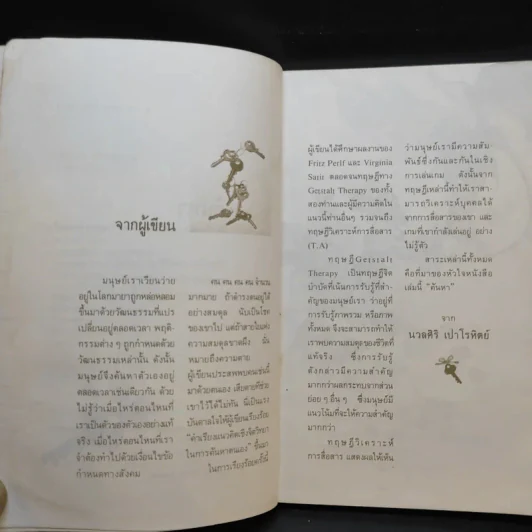 จากผู้เขียน
มนุษย์เราเวียนว่าย
อยู่ในโลกมายาถูกหล่อหลอม
ขึ้นมาด้วยวัฒนธรรมที่แปร
เปลี่ยนอยู่ตลอดเวลา พฤติ
กรรมต่าง ๆ ถูกกำหนดด้วย
วัฒนธรรมเหล่านั้น ดังนั้น
มนุษย์จึงค้นหาตัวเองอยู่
ตลอดเวลาเช่นเดียวกัน ด้วย
ไม่รู้ว่าเมื่อไหร่ตอนไหนที่
เราเป็นตัวของตัวเองอย่างแท้
จริง เมื่อไหร่ตอนไหนที่เรา
จำต้องทำไปด้วยเงื่อนไขข้อ
กำหนดทางสังคม
คน คน คน คน จำนวน
มากมาย ถ้าดำรงตนอยู่ได้
อย่างสมดุล นับเป็นโชค
ของเขาไป แต่ถ้าสายใยแห่ง
ความสมดุลขาดผึง นั่น
หมายถึงความตาย
ผู้เขียนประสพพบคนเช่นนี้
มาด้วยตนเอง เสียดายที่ช่วย
เขาไว้ได้ไม่ทัน นี่เป็นแรง
บันดาลใจให้ผู้เขียนเรื่องร้อย
"คำเรียงแนวคิดเชิงจิตวิทยา
ในการค้นหาตนเอง" ขึ้นมา
ในการเรียงร้อยครั้งนี้
ผู้เขียนได้ศึกษาผลงานของ
Fritz Perlf และ Virginia
Satir ตลอดจนทฤษฎีทาง
Ge(sta)t Therapy ของทั้ง
สองท่านและผู้มีความคิดใน
แนวนี้ท่านอื่นๆ รวมจนถึง
ทฤษฎีวิเคราะห์การสื่อสาร
(T.A)
ทฤษฎี Ge(sta)t
Therapy เป็นทฤษฎีจิต
บำบัดที่เน้นการรับรู้ที่สำ
คัญของมนุษย์เรา ว่าอยู่ที่
การรับรู้ภาพรวม หรือภาพ
ทั้งหมด จึงจะสามารถทำให้
เราพบความสมดุลของชีวิตที่
แท้จริง ซึ่งการรับรู้
ดังกล่าวมีความสำคัญ
มากกว่าผลกระทบจากส่วน
ย่อย ๆ อื่น ๆ ซึ่งมนุษย์มี
แนวโน้มที่จะให้ความสำคัญ
มากกว่า
ทฤษฎีวิเคราะห์
การสื่อสาร แสดงผลให้เห็น
ว่ามนุษย์เรามีความสัม
พันธ์ซึ่งกันและกันในเชิง
การเล่นเกม ดังนั้นจาก
ทฤษฎีเหล่านี้ทำให้เราสา
มารถวิเคราะห์บุคคลได้
จากการสื่อสารของเขา และ
เกมที่เขากำลังเล่นอยู่ อย่าง
ไม่รู้ตัว
สาระเหล่านี้ทั้งหมด
คือที่มาของหัวใจหนังสือ
เล่มนี้ "ค้นหา"
จาก
นวลศิริ เปาโรหิตย์